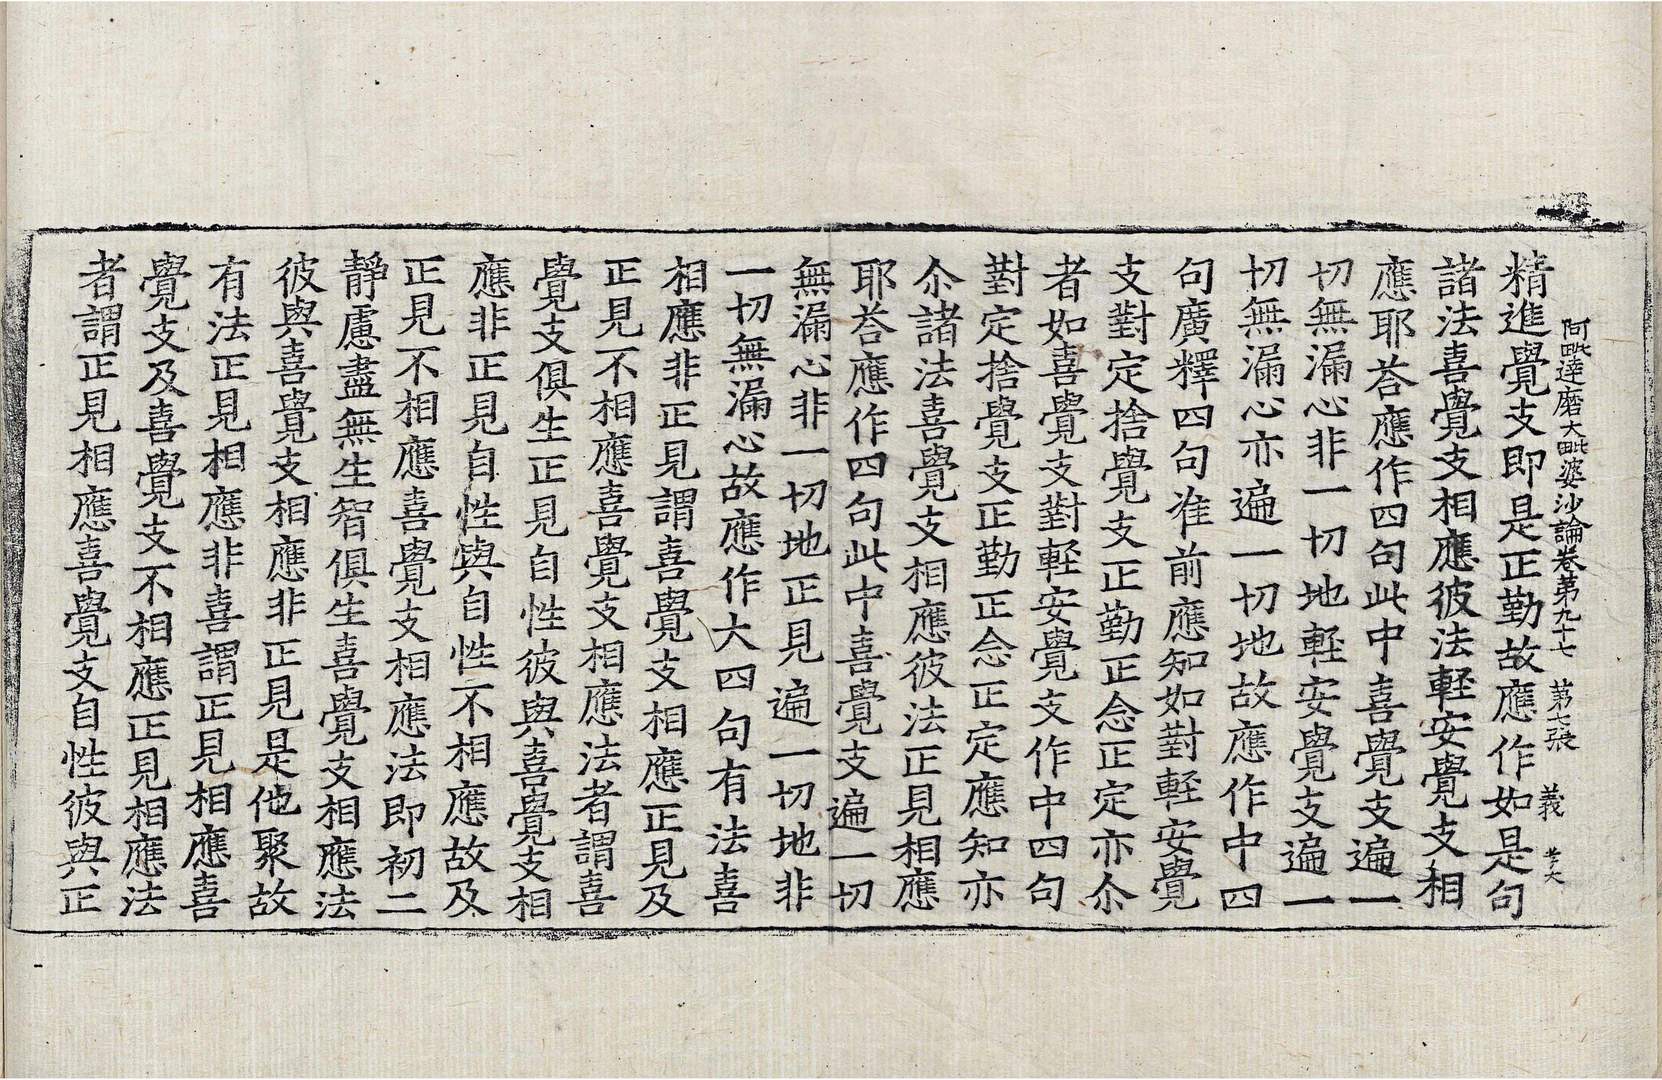 阿毗達磨大毗婆沙論卷第九十七 第七張 義
精進覺支即是正勤故應作如是句
諸法喜覺支相應彼法輕安覺支相
應耶荅應作四句此中喜覺支遍一
切無漏心非一切地輕安覺支遍一
切無漏心亦遍一切地故應作中四
句廣釋四句准前應知如對輕安覺
支對定捨覺支正勤正念正定亦尒
者如喜覺支對輕安覺支作中四句
對定捨覺支正勤正念正定應知亦
尒諸法喜覺支相應彼法正見相應
耶荅應作四句此中喜覺支遍一切
無漏心非一切地正見遍一切地非
一切無漏心故應作大四句有法喜
相應非正見謂喜覺支相應正見及
正見不相應喜覺支相應法者謂喜
覺支俱生正見自性彼與喜覺支相
應非正見自性與自性不相應故及
正見不相應喜覺支相應法即初二
靜慮盡無生智俱生喜覺支相應法
彼與喜覺支相應非正見是他聚故
有法正見相應非喜謂正見相應喜
覺支及喜覺支不相應正見相應法
者謂正見相應喜覺支自性彼與正